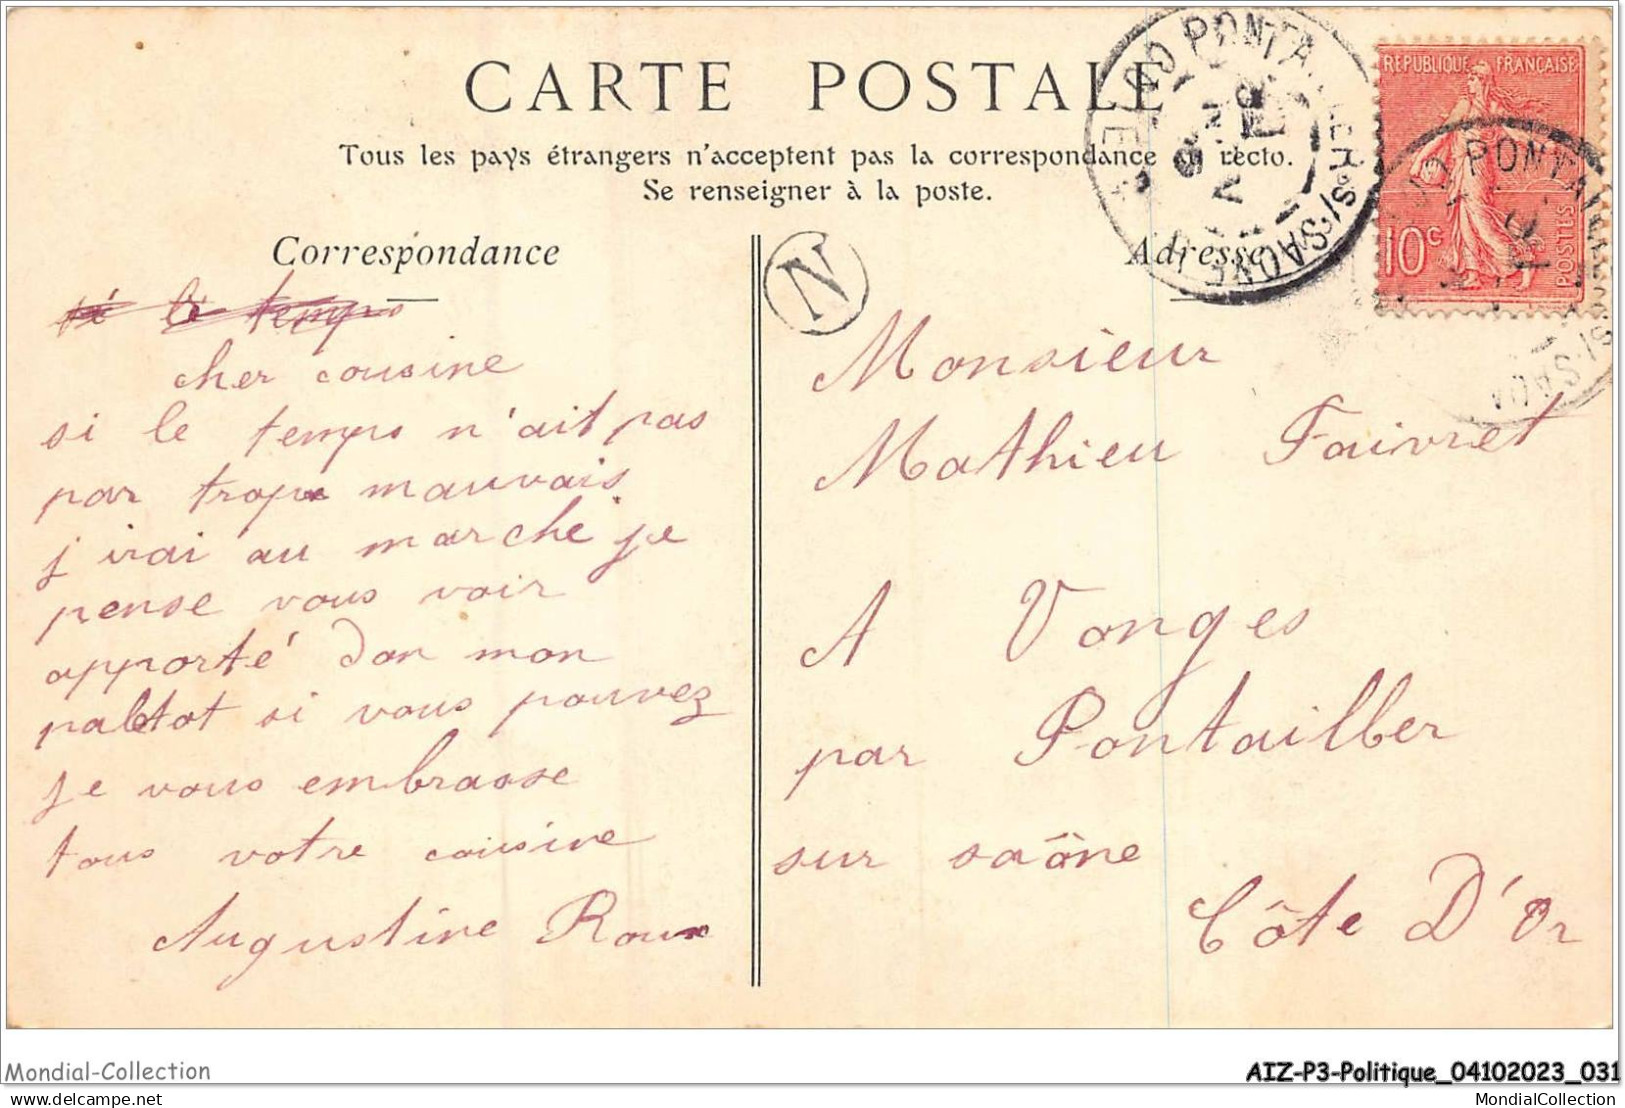 CARTE POSTALE
Tous les pays étrangers n'acceptent pas la correspondance au recto.
Se renseigner à la poste.
Correspondance
si le temps
cher cousine
si le temps n'ait pas
par trop mauvais
j'irai au marche je
pense vous voir
apporté don mon
paletot si vous pouvez
je vous embrasse
tous votre cousine
Augustine Roux
N
Adresse
Monsieur
Mathieu Faivret
A Vonges
par Pontailler
sur saône
Côte D'Or
REPUBLIQUE FRANÇAISE
10c
POSTES
Mondial-Collection
AIZ-P3-Politique_04102023_031
MondialCollection